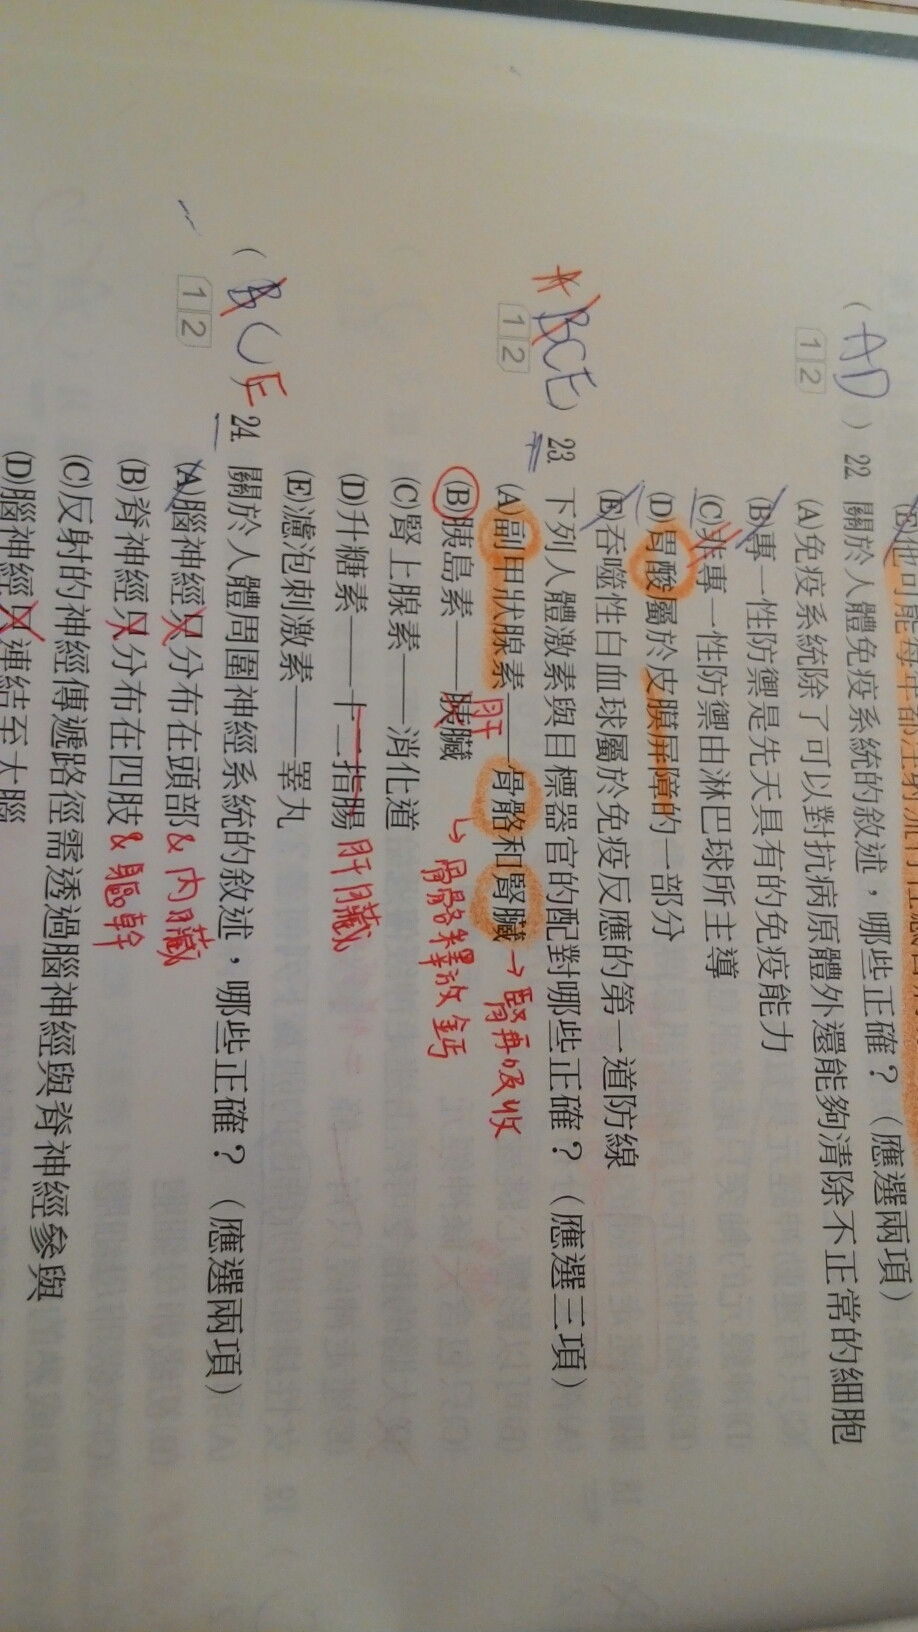 他可能每年都注射流行性感
(AD) 22. 關於人體免疫系統的敘述，哪些正確？（應選兩項）
1 2
(A)免疫系統除了可以對抗病原體外還能夠清除不正常的細胞
(B)專一性防禦是先天具有的免疫能力
(C)非專一性防禦由淋巴球所主導
(D)胃酸屬於皮膜屏障的一部分
(E)吞噬性白血球屬於免疫反應的第一道防線
(ABCE) 23. 下列人體激素與目標器官的配對哪些正確？（應選三項）
1 2
(A)副甲狀腺素——骨骼和腎臟→腎再吸收
↳骨骼釋放鈣
(B)胰島素——胰臟 肝
(C)腎上腺素——消化道
(D)升糖素——十二指腸 肝臟
(E)濾泡刺激素——睪丸
(BCE) 24. 關於人體周圍神經系統的敘述，哪些正確？（應選兩項）
1 2
(A)腦神經只分布在頭部&內臟
(B)脊神經只分布在四肢&軀幹
(C)反射的神經傳遞路徑需透過腦神經與脊神經參與
(D)腦神經只連結至大腦